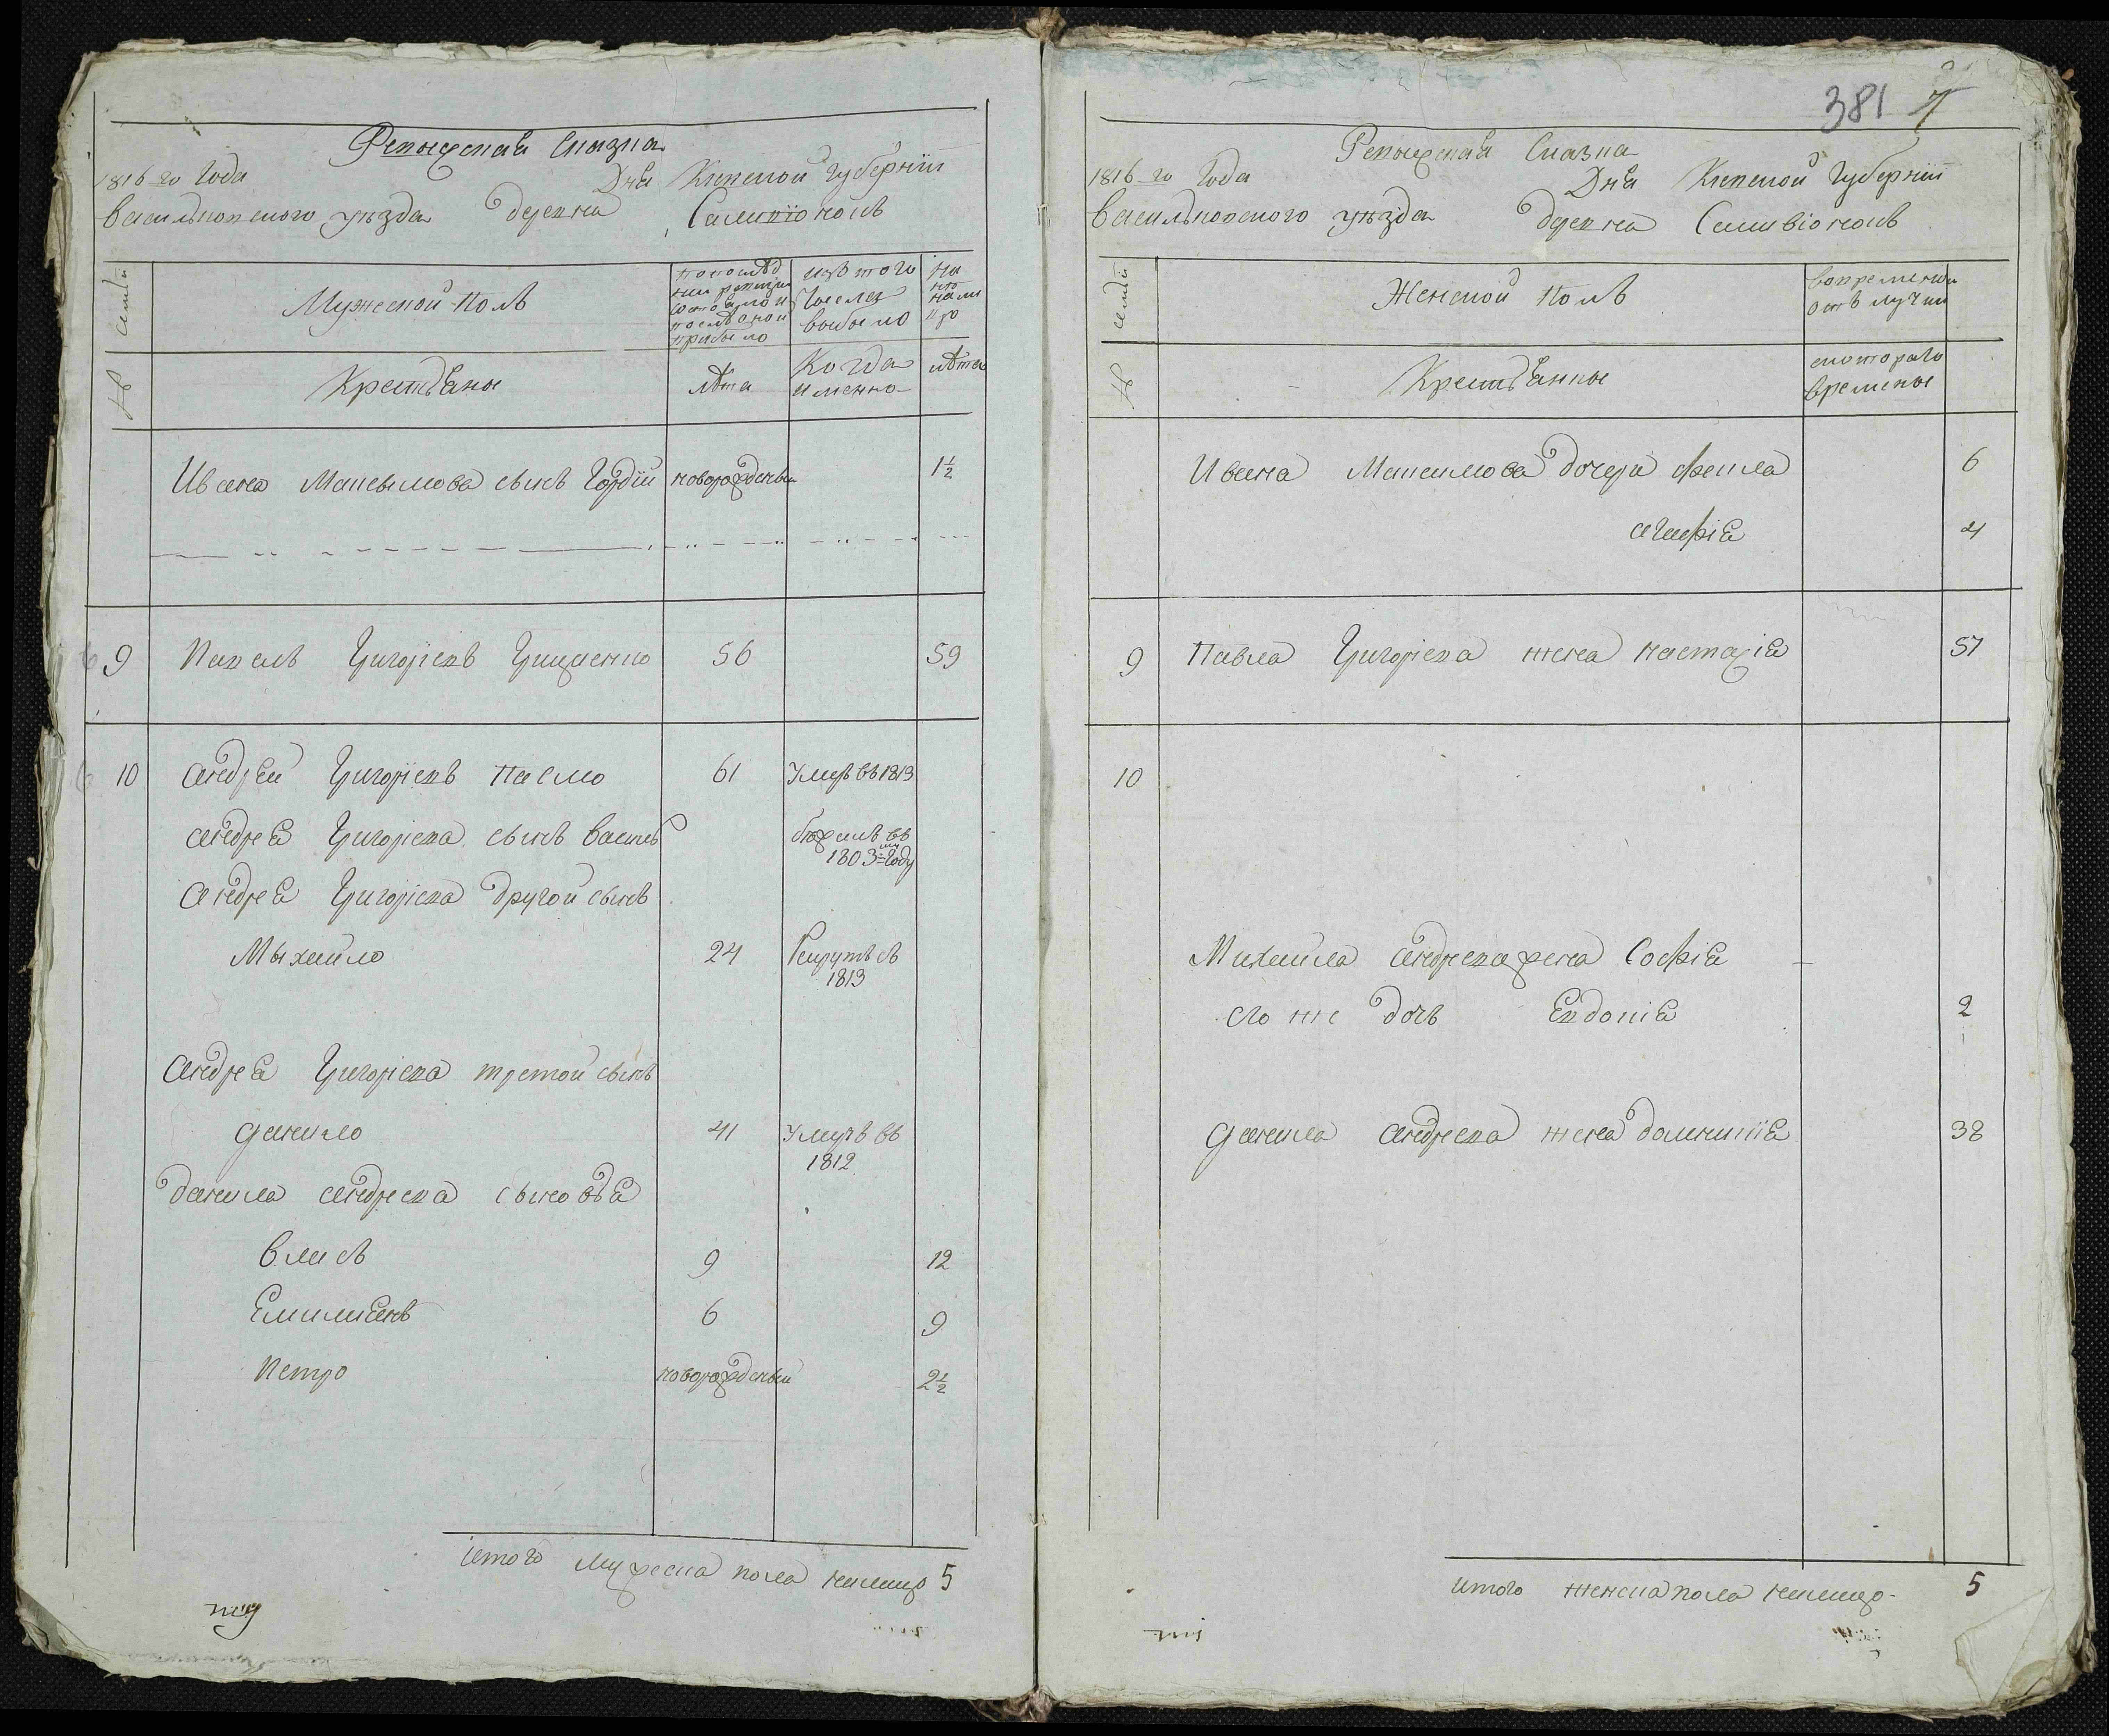 Ревыжская Сказка
1816 го Года Дня Киевской Губернїи
васильковского уезда деревня Саливїонокъ
семьи
Мужеской Полъ
по послѣд
ней ревизїи
состояло и
послѣ оной
прибыло
изъ того
числа
выбыло
на
ли
цо
№
Крестьяны
лѣта
Когда
именно
лѣта
Ивана Максымова сынъ Гордїй новорожденый 1½
9 Павелъ Григорїевъ Грищенко 56 59
10 андрей Григорїевъ Пасмо 61 Умеръ въ 1813
андрея Григорїева сынъ василь бѣжалъ въ
1803 = году
Андрея Григорїева другой сынъ
Мыхайло 24 Рекрутъ въ
1813
Андрея Григорїева третой сынъ
данило 41 Умеръ въ
1812
данила андреева сыновья
власъ 9 12
Емилиянъ 6 9
Петро новорожденый 2½
итого мужеска пола налицо 5
381 7
Ревыжская Сказка
1816 го Года Дня Киевской Губернїи
васильковского уезда деревня Саливїонокъ
семьи
Женской Полъ
во временой
отлучки
№
Крестьянки
с котораго
времены
Ивана Максимова дочери фекла 6
агафїя 4
9 Павла Григорїева жена настасїя 57
10
Михаила андреева жена Софїя
его же дочь Евдокїя 2
данила андреева жена домникїя 38
итого женска пола налицо 5